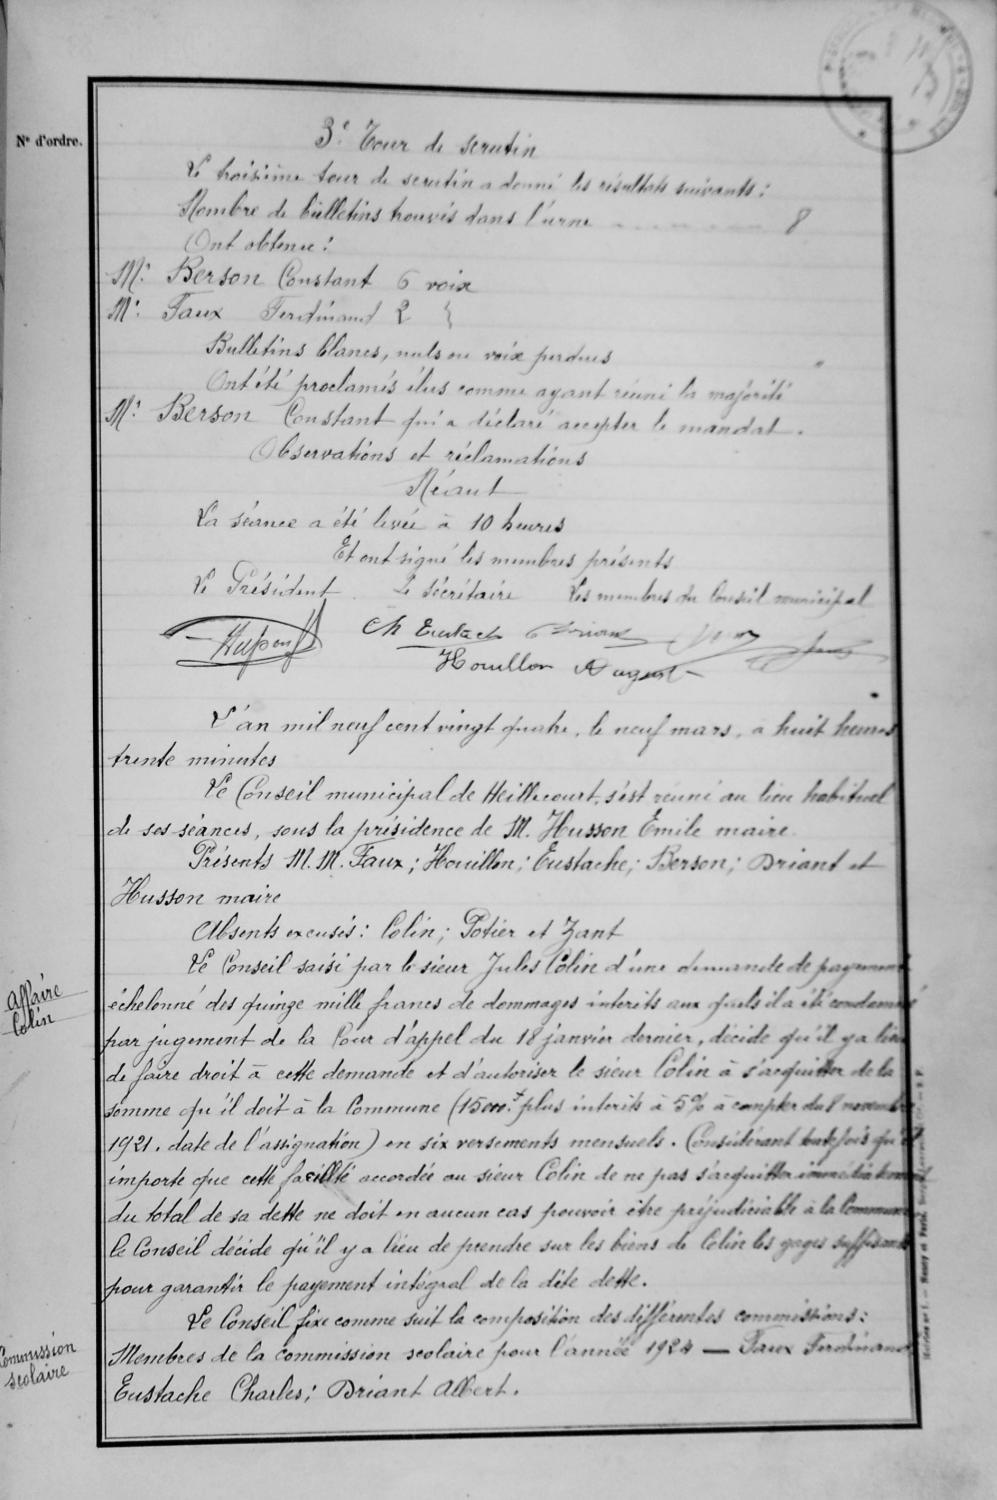 N° d'ordre.
3e Tour de scrutin
Le troisième tour de scrutin a donné les résultats suivants :
Nombre de bulletins trouvés dans l'urne 8
Ont obtenu :
Mr Berson Constant 6 voix
Mr Faux Ferdinand 2 }
Bulletins blancs, nuls ou voix perdues "
Ont été proclamés élus comme ayant réuni la majorité
Mr Berson Constant qui a déclaré accepter le mandat.
Observations et réclamations
Néant
La séance a été levée à 10 heures
Et ont signé les membres présents
Le Président Le secrétaire Les membres du Conseil municipal
Ch Eustach
Houillon
L'an mil neuf cent vingt quatre, le neuf mars, à huit heures
trente minutes
Le Conseil municipal de Heillecourt, s'est réuni au lieu habituel
de ses séances, sous la présidence de M. Husson Emile maire.
Présents M.M. Faux ; Houillon ; Eustache ; Berson ; Driant et
Husson maire
Absents excusés : Colin ; Potier et Zant
Affaire
Colin
Le Conseil saisi par le sieur Jules Colin d'une demande de payement
échelonné des quinze mille francs de dommages interits aux quels il a été condamné
par jugement de la Cour d'appel du 18 janvier dernier, décide qu'il y a lieu
de faire droit à cette demande et d'autoriser le sieur Colin à s'acquitter de la
somme qu'il doit à la Commune (15000f plus interits à 5% à compter du 8 novembre
1921. date de l'assignation) en six versements mensuels. Considérant toutefois qu'il
importe que cette facilité accordée au sieur Colin de ne pas s'acquitter immédiatement
du total de sa dette ne doit en aucun cas pouvoir être préjudiciable à la Commune
le Conseil décide qu'il y a lieu de prendre sur les biens de Colin les gages suffisants
pour garantir le payement intégral de la dite dette.
Le Conseil fixe comme suit la composition des différentes commissions :
Commission
scolaire
Membres de la commission scolaire pour l'année 1924 — Faux Ferdinand
Eustache Charles ; Driant Albert.